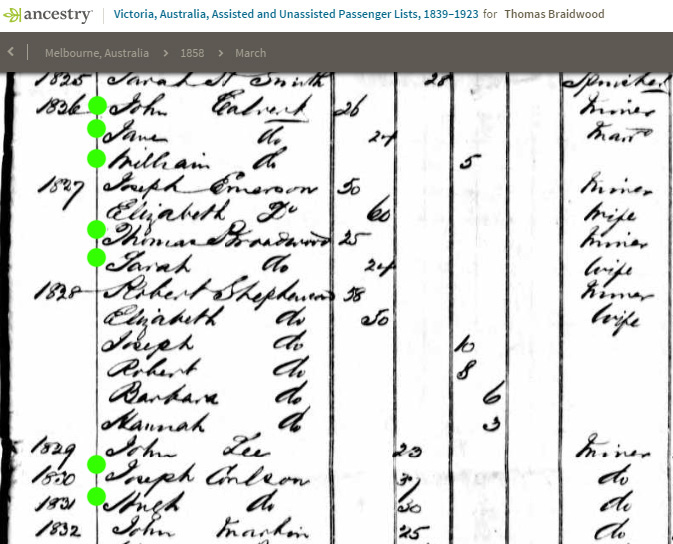 ancestry Victoria, Australia, Assisted and Unassisted Passenger Lists, 1839–1923 for Thomas Braidwood
Melbourne, Australia > 1858 > March
1825 Sarah St Smith 28 Spinster
1826 John Calvert 26 Miner
Jane do 24
William do 5
1827 Joseph Emerson 50 Miner
Elizabeth Do 60 Wife
Thomas Broadwood 25 Miner
Sarah do 24 Wife
1828 Robert Shepherson 58 Miner
Elizabeth do 50 Wife
Joseph do 10
Robert do 8
Barbara do 6
Hannah do 3
1829 John Lee 23 Miner
1830 Joseph Coulson 37 do
1831 Hugh do 30 do
1832 John Martin 25 do